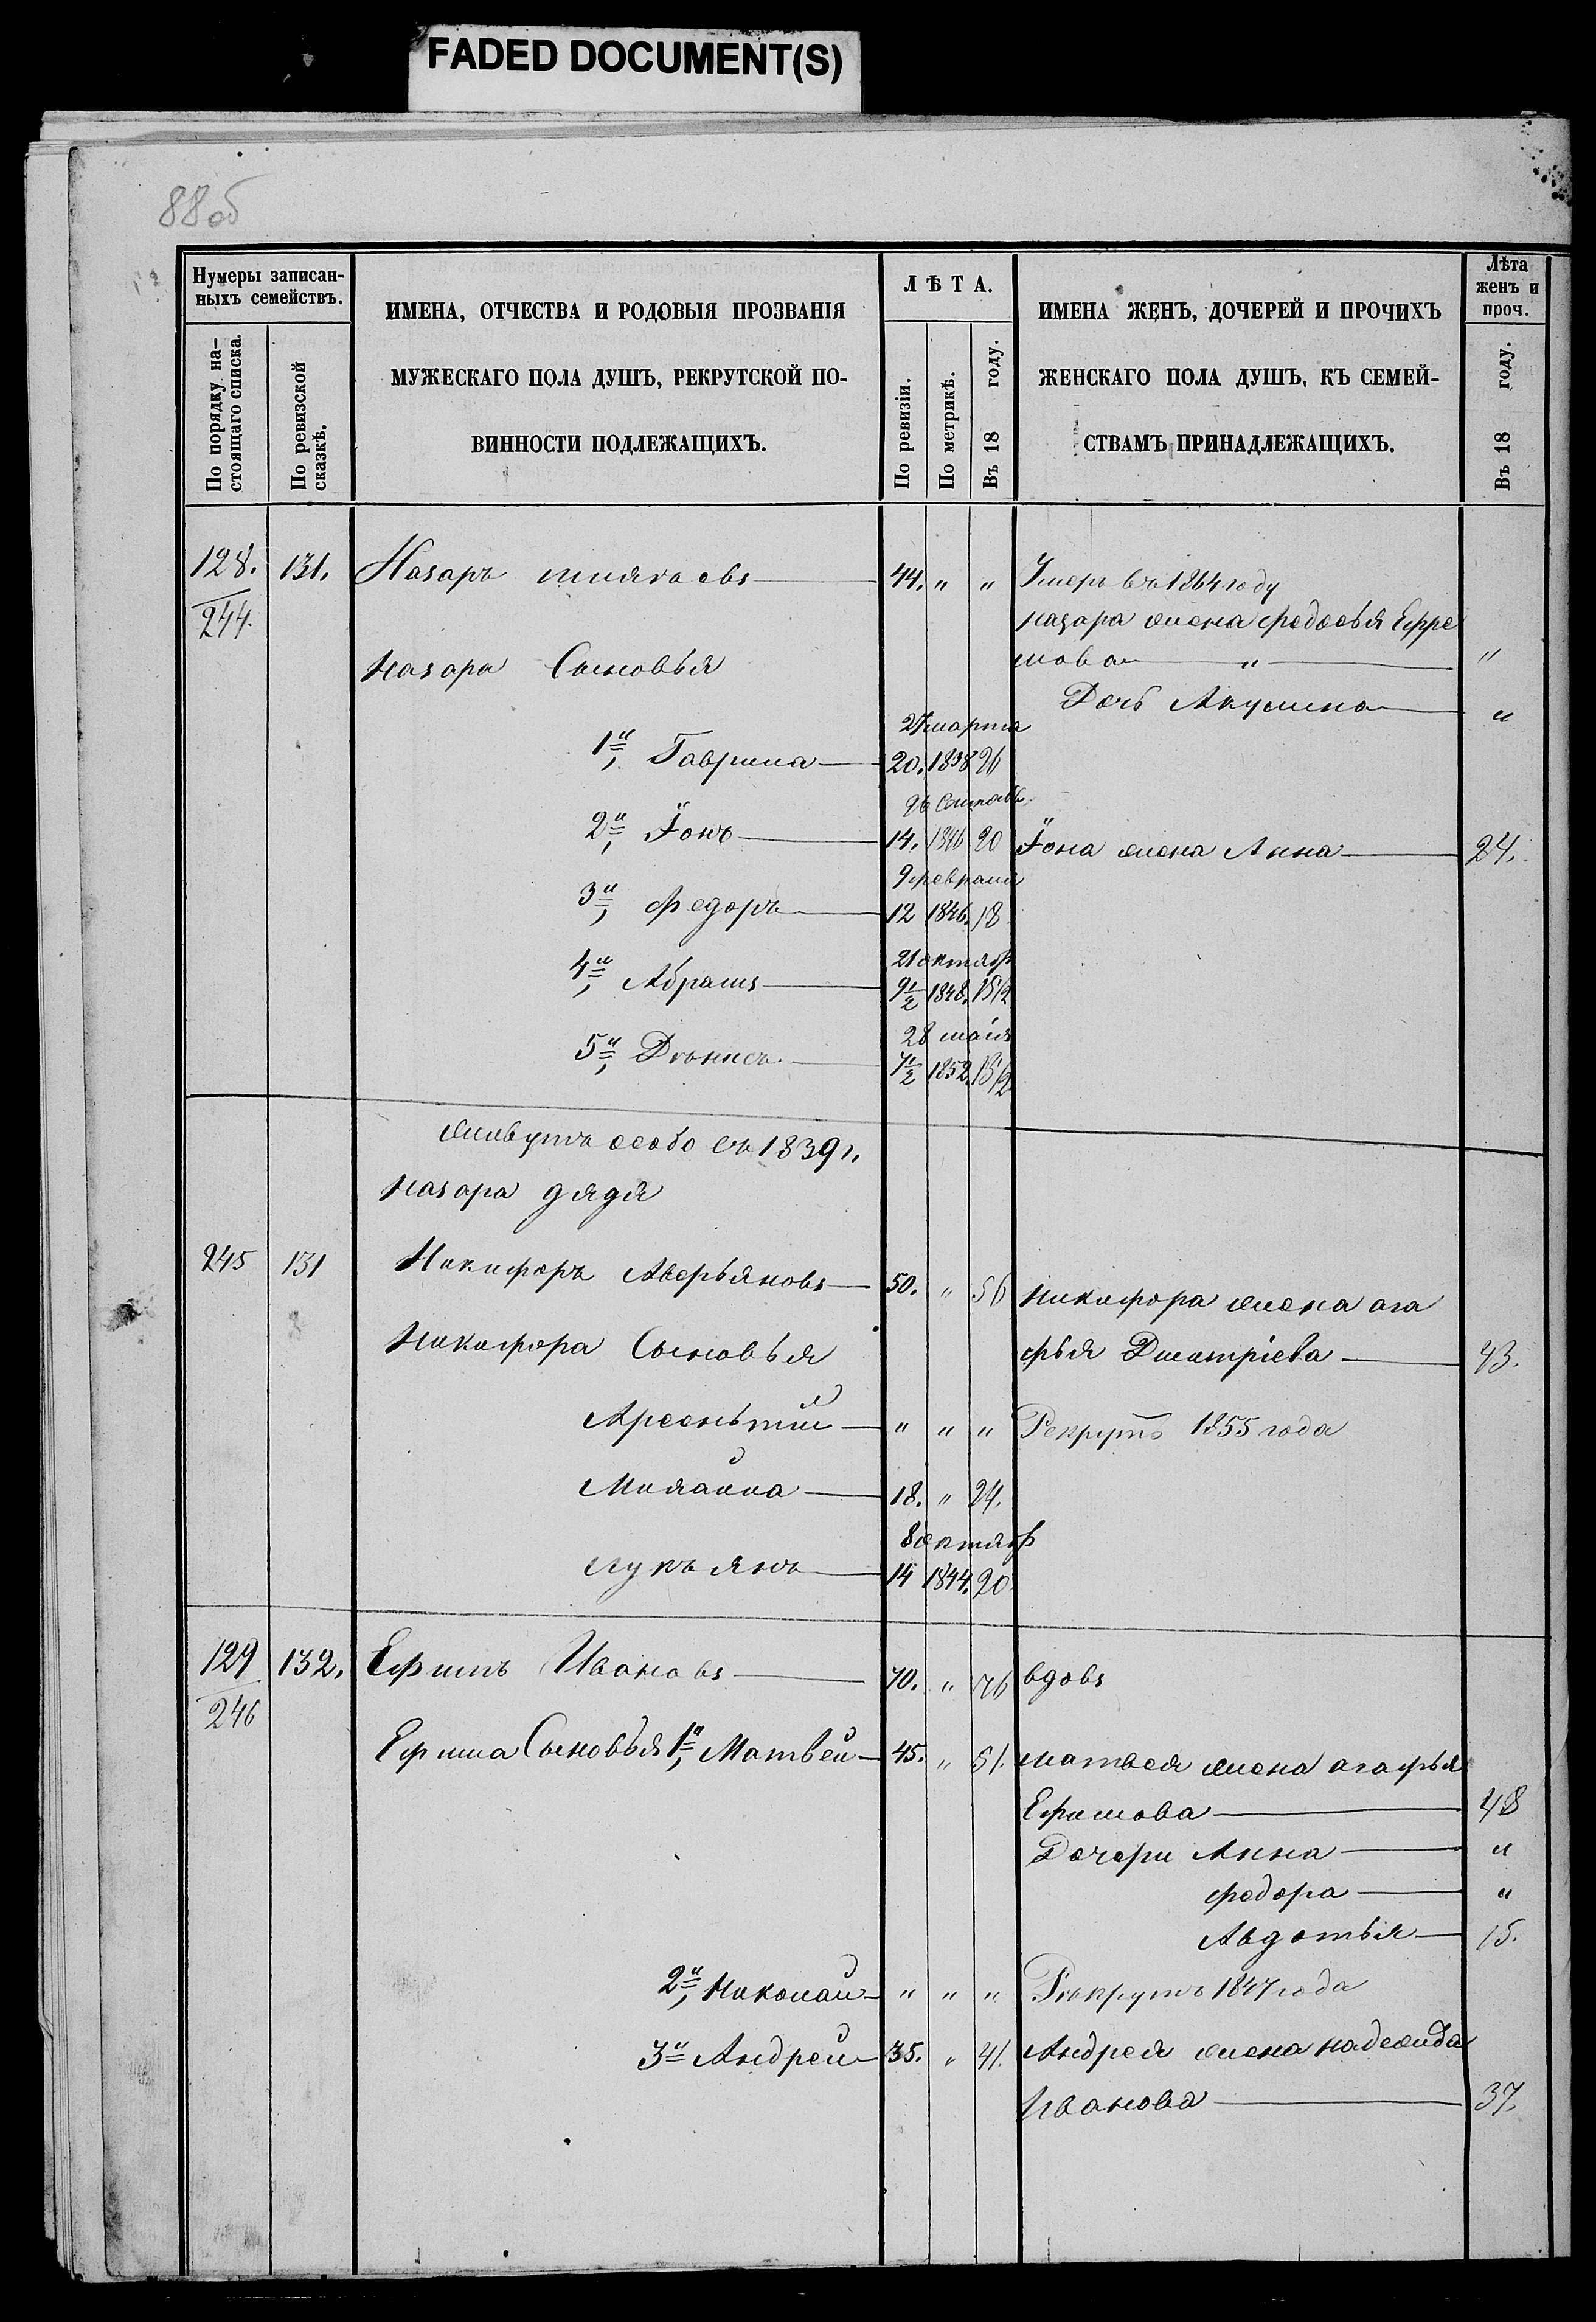 FADED DOCUMENT(S)
88 об
Нумеры записан-
ныхъ семействъ.
По порядку на-
стоящаго списка.
По ревизской
сказкѣ.
ИМЕНА, ОТЧЕСТВА И РОДОВЫЯ ПРОЗВАНІЯ
МУЖЕСКАГО ПОЛА ДУШЪ, РЕКРУТСКОЙ ПО-
ВИННОСТИ ПОДЛЕЖАЩИХЪ.
ЛѢТА.
По ревизіи.
По метрикѣ.
Въ 18 году.
ИМЕНА ЖЕНЪ, ДОЧЕРЕЙ И ПРОЧИХЪ
ЖЕНСКАГО ПОЛА ДУШЪ, КЪ СЕМЕЙ-
СТВАМЪ ПРИНАДЛЕЖАЩИХЪ.
Лѣта
женъ и
проч.
Въ 18 году.
128. 131. Назаръ 44. " " Умеръ въ 1864 году
244.
назара жена федосья Ефре
мова " "
назара Сыновья
Дочь Акулина "
27 марта
1й, Гаврила 20. 1838 26
26 Сентябр
2й, Іонъ 14. 20 Іона жена Анна 24.
9 февраля
3й, федоръ 12 1846. 18
21 октябр
4й, Абрамъ 9½ 1848. 15½
28 маія
5й, Денисъ 7½ 1852.
живутъ особо съ 1839 г.
назара дядя
245 131 Никифоръ Аверьяновъ 50. " 56 никифора жена ага
фья Дмитріева 43.
Никифора Сыновья
Арсентій " " " Рекрутъ 1855 года
Михайла 18. " 24.
8 октябр
лукъянъ 14 1844. 20
129 132. Ефимъ Ивановъ 70. " 76 вдовъ
246
Ефима Сыновья 1й, Матвей 45. " 51. матвея жена агафья
Ефимова 48
Дочери Анна "
федора "
Авдотья 15.
2й, Николай " " " Рекрутъ 1847 года
3й Андрей 35. " 41. Андрея жена надежда
Иванова 37.